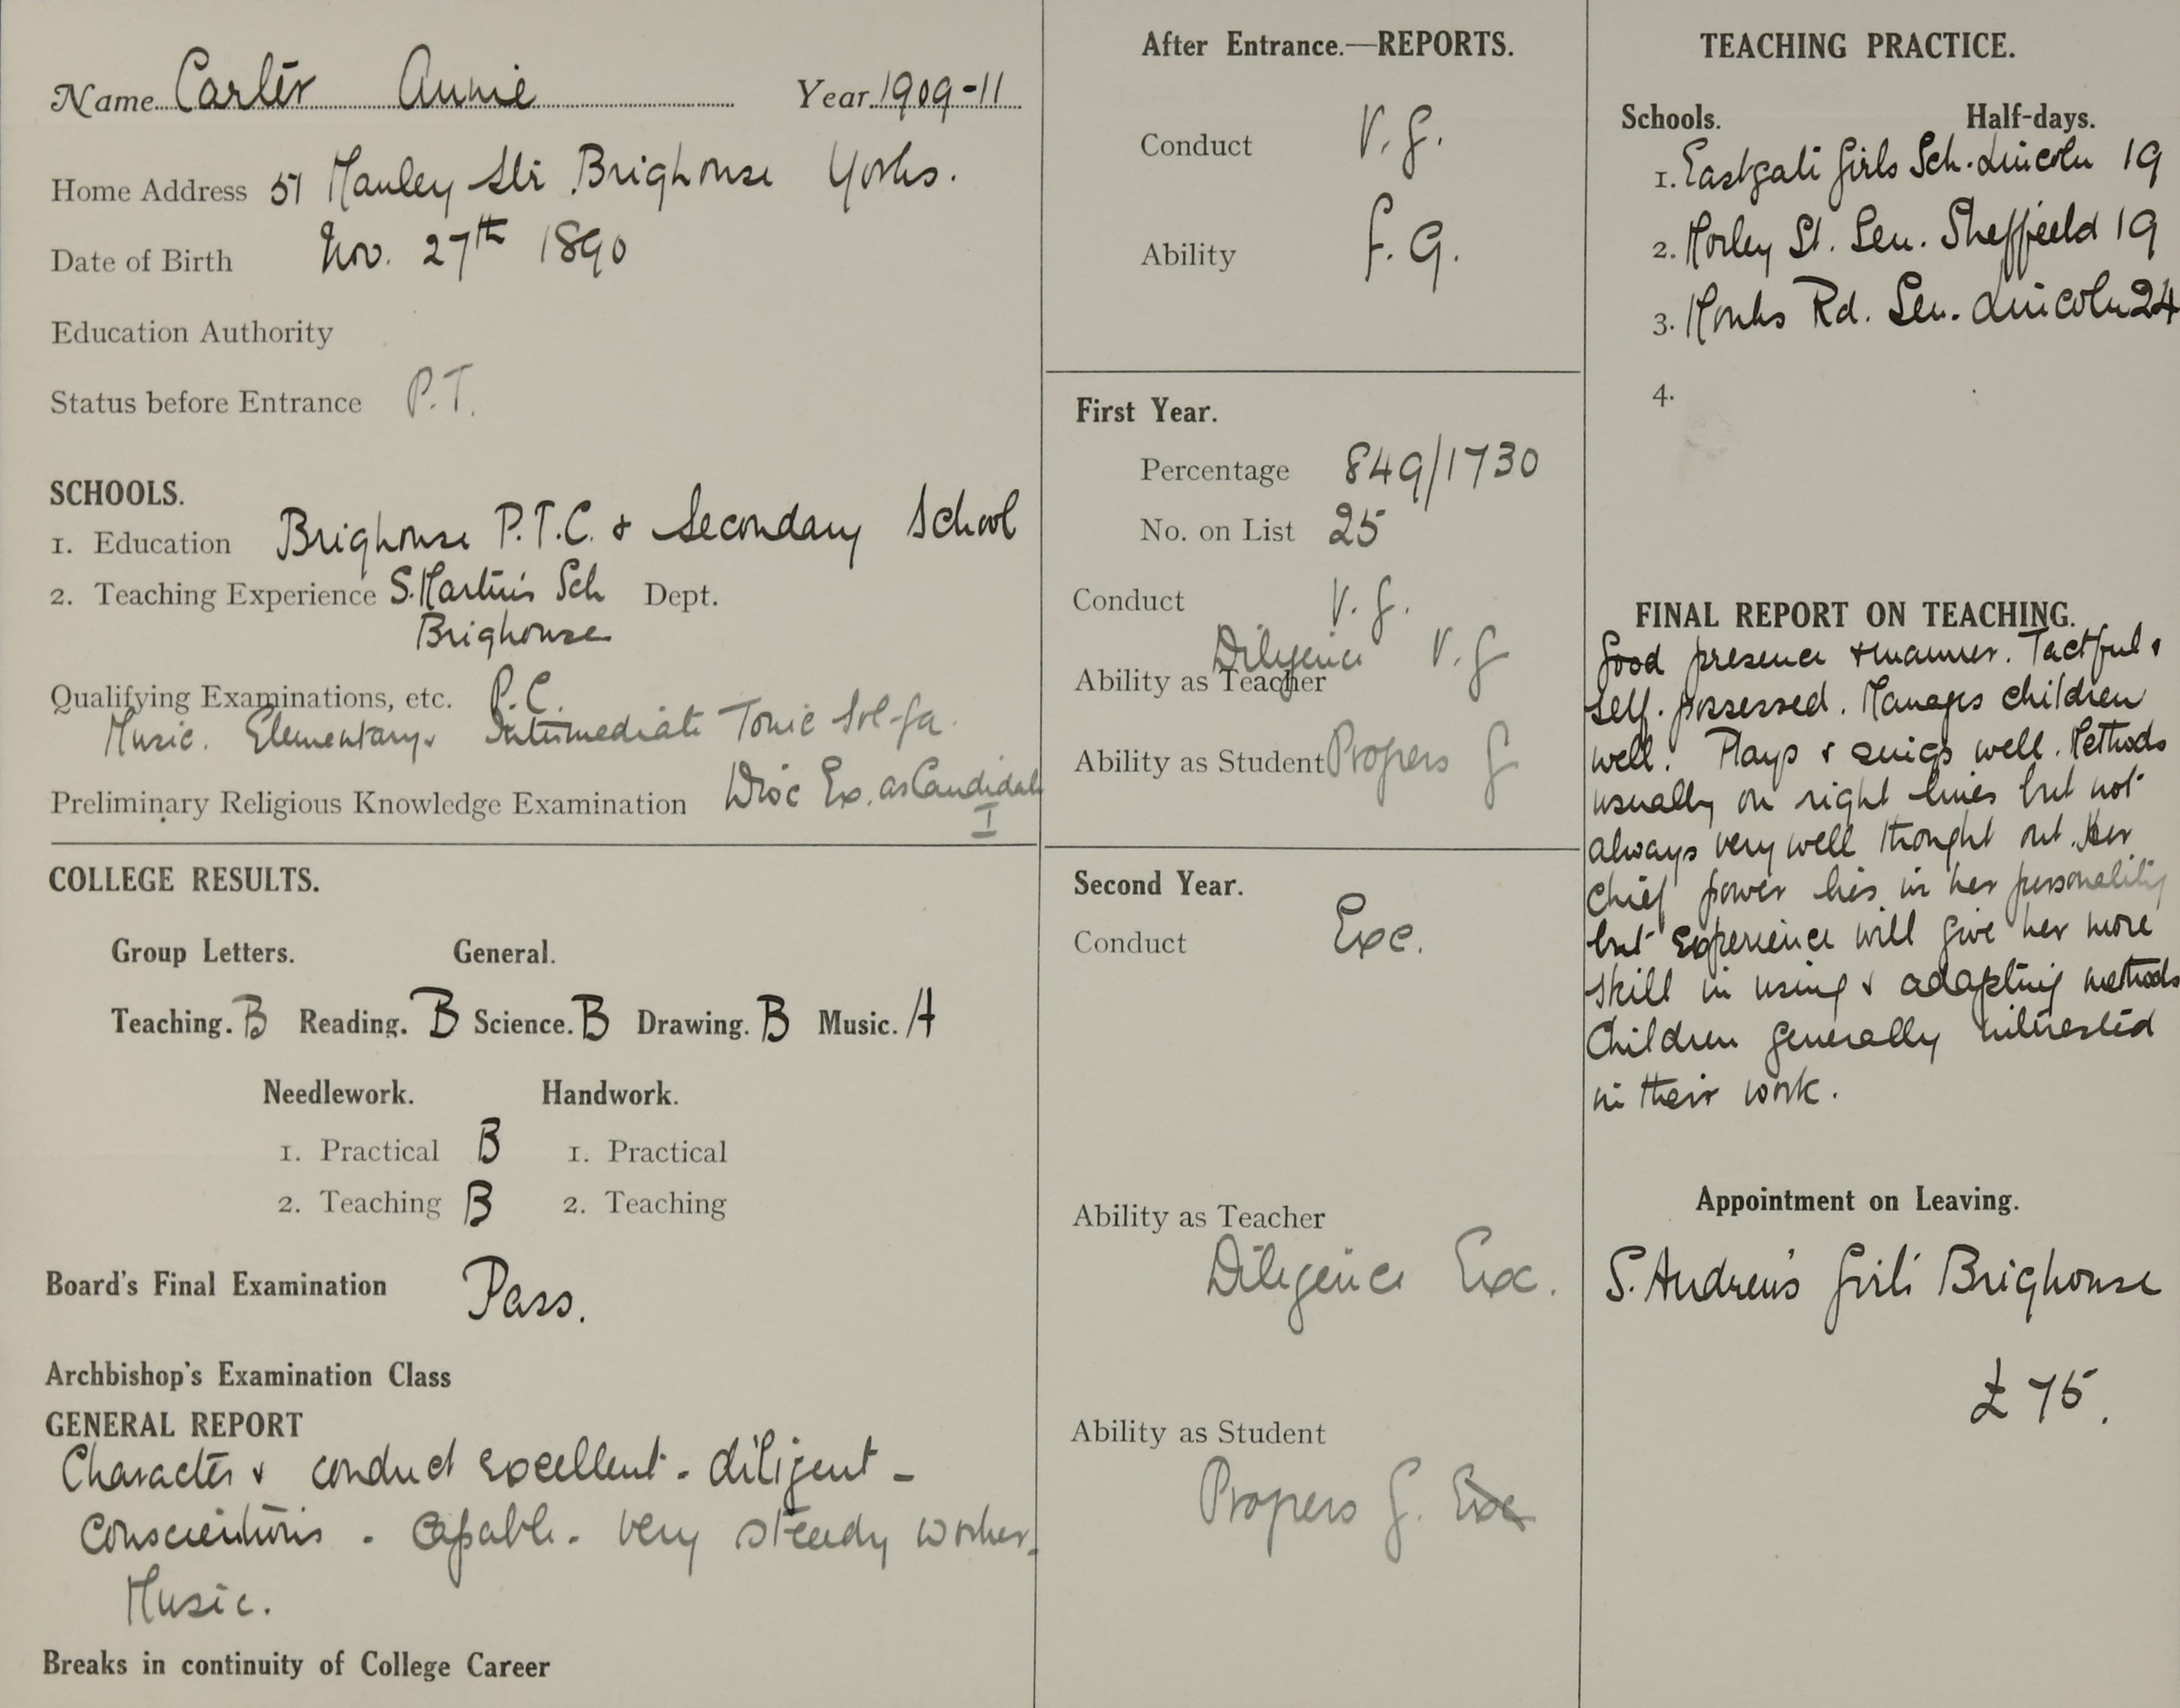 Name Carter Annie Year 1909-11
Home Address 51 Manley Str. Brighouse Yorks.
Date of Birth Nov. 27th 1890
Education Authority
Status before Entrance P.T.
SCHOOLS.
1. Education Brighouse P.T.C. & Secondary School
2. Teaching Experience S. Martin's Sch Dept.
Brighouse
Qualifying Examinations, etc. P.C.
Music. Elementary & Intermediate Tonic Sol-fa.
Preliminary Religious Knowledge Examination Dioc Ex. as Candidate
I
COLLEGE RESULTS.
Group Letters. General.
Teaching. B Reading. B Science. B Drawing. B Music. A
Needlework. Handwork.
1. Practical B 1. Practical
2. Teaching B 2. Teaching
Board's Final Examination Pass.
Archbishop's Examination Class
GENERAL REPORT
Character & conduct excellent - diligent -
Conscientious - Capable - very steady worker.
Music.
Breaks in continuity of College Career
After Entrance.—REPORTS.
Conduct V.g.
Ability F.G.
First Year.
Percentage 849/1730
No. on List 25
Conduct V.g.
Diligence V.g
Ability as Teacher
Ability as Student Progress g
Second Year.
Conduct Exc.
Ability as Teacher
Diligence Exc.
Ability as Student
Progress g. Exc
TEACHING PRACTICE.
Schools. Half-days.
1. Eastgate Girls Sch. Lincoln 19
2. Morley St. Sen. Sheffield 19
3. Monks Rd. Sen. Lincoln 24
4.
FINAL REPORT ON TEACHING.
Good presence & manner. Tactful &
self-possessed. Manages children
well. Plays & sings well. Methods
usually on right lines but not
always very well thought out. Her
chief power lies in her personality
but experience will give her more
skill in using & adapting methods
Children generally interested
in their work.
Appointment on Leaving.
S. Andrew's Girls' Brighouse
£75.